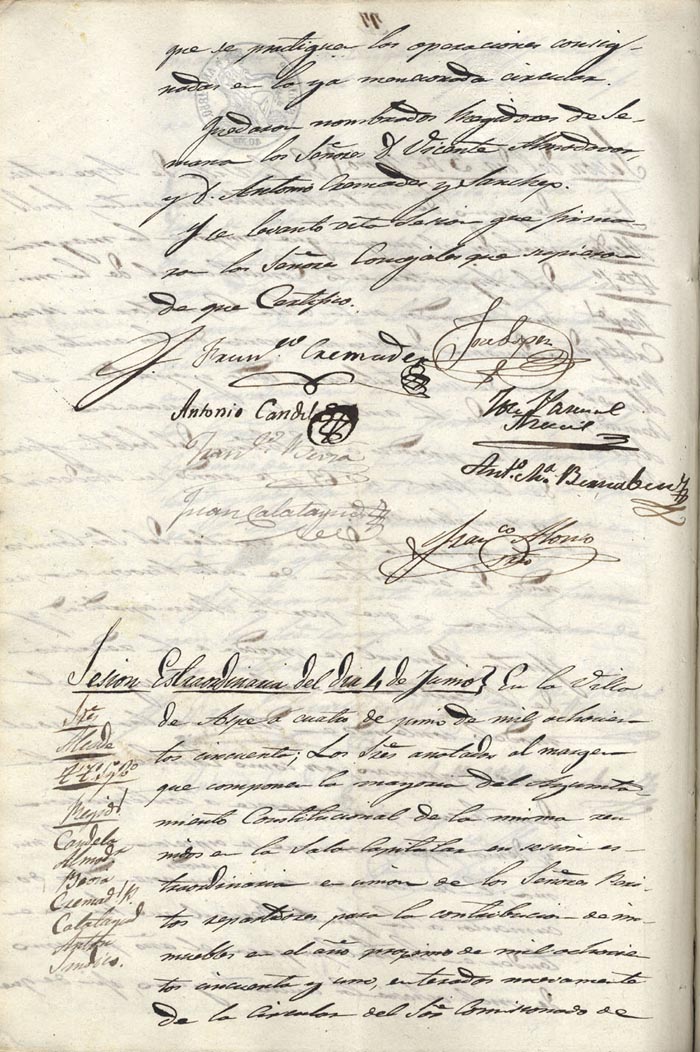 que se practiquen las operaciones consig-
nadas en la ya mencionada circular.
Quedaron nombrados Regidores de Se-
mana los Señores D. Vicente Almodovar,
y D. Antonio Cremades y Sanchez.
Y se levantó esta Sesion que firma-
ron los Señores Concejales que supieron
de que Certifico.
Fran.co Cremades
Jose Lopez
Antonio Candela
Jose Pascual
Fran.co Berna
Ant.o M.a Bernabeu
Juan Calatayud
Fran.co Alonso
Srio
Sesion Estraordinaria del dia 4 de Junio} En la Villa
de Aspe a cuatro de junio de mil ochocien-
tos cincuenta; Los Sres anotados al margen
que componen la mayoria del Ayunta-
miento Constitucional de la misma reu-
nidos en la Sala Capitular en sesion es-
traordinaria en union de los Señores Peri-
tos repartidores para la contribucion de in-
muebles en el año procsimo de mil ochocien-
tos cincuenta y uno, enterados nuevamente
de la Circular del Sor Comisionado de
Sres
Alcalde
Regid.s
Candela
Almod.r
Berna
Cremad.s
Calatayud
Sindico.